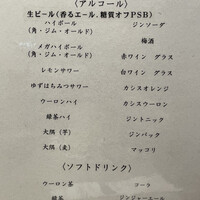 〈アルコール〉
生ビール(香るエール,糖質オフPSB)
ハイボール
(角・ジム・オールド)
メガハイボール
(角・ジム・オールド)
レモンサワー
ゆずはちみつサワー
ウーロンハイ
緑茶ハイ
大隅 (芋)
大隅 (麦)
ジンソーダ
梅酒
赤ワイン グラス
白ワイン グラス
カシスオレンジ
カシスウーロン
ジントニック
ジンバック
マッコリ
〈ソフトドリンク〉
ウーロン茶
緑茶
コーラ
ジンジャーエール